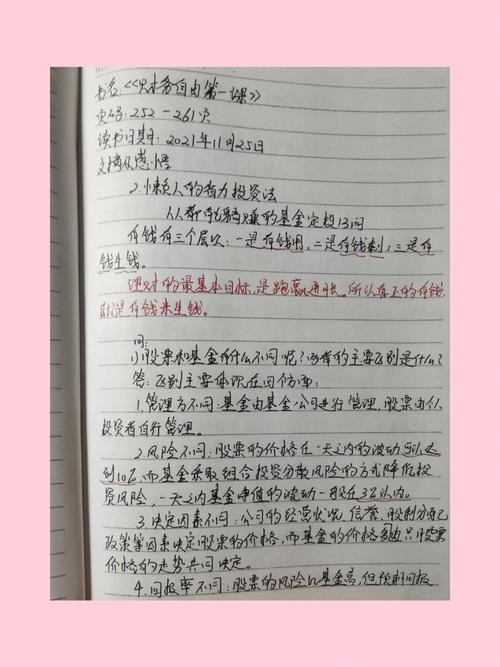 书名:《财务自由第一课》
页码:252-261页
读书日期:2021年11月25日
文摘及感悟
2.懒人的省力投资法
人人都能稳赚的基金定投13问
有钱有三个层次:一是有钱用,二是有钱剩;三是有
钱生钱。
理财的最基本目标,是跑赢通胀。所以真正的有钱
就是有钱来生钱。
问:
1)股票和基金有什么不同呢?两者的主要区别是什么?
答:区别主要体现在四个方面:
1.管理方不同:基金由基金公司进行管理,股票由
投资者自行管理。
2.风险不同:股票的价格在一天之内的波动可以达
到10%,而基金采取组合投资分散风险的方式降低投
资风险,一天之内基金净值的波动一般在3%以内。
3.决定因素不同:公司的经营状况、信誉、股利分配
政策等因素决定股票的价格,而基金的价格多由几只股票
价格的走势共同决定。
4.回报率不同:股票的风险比基金高,但预期回报